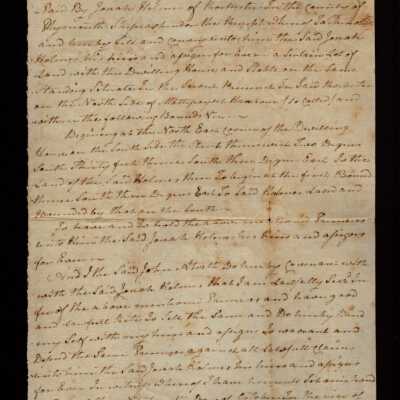 Paid By Jonah Holmes of Rochester in the County of
Plymouth
and hereby Sell and convey unto him the Said Jonah
Holmes his heirs and assigns for Ever a Certain Lot of
Land with the Dwelling House and Stable on the Same
Standing Situate in the Second in Said Rochester
on the North Side of Mattapoiset Harbour (So Called) and
within the following Bounds Viz
Begining at the North East Corner of the Dwelling
House on the South Side the thence West Two Degrees
South Thirty feet thence South three Degrees East To the
Land of the Said Holmes then To begin at the first Bound
thence South three Degrees East To Said Holmes Land and
bounded by that on the South
To have and To hold the Premises
unto him the Said Jonah Holmes his heirs and assigns
for Ever
And I the Said John Do hereby Covenant with
with the Said Jonah Holmes that I am Lawfully Seized in
fee of the above mentioned Premises and have good
and Lawfull Right To Sell the Same and Do hereby Bind
my Self with my heirs and assigns To warrant and
Defend the Same Premises against all Lawfull Claims
unto him the Said Jonah Holmes his heirs and assigns
for Ever In witness whereof I have hereunto Set my hand
Day of October In the year of